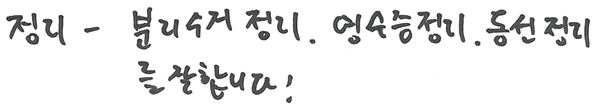 정리 - 분리수거 정리. 영수증정리. 동선정리
를 잘합니다!